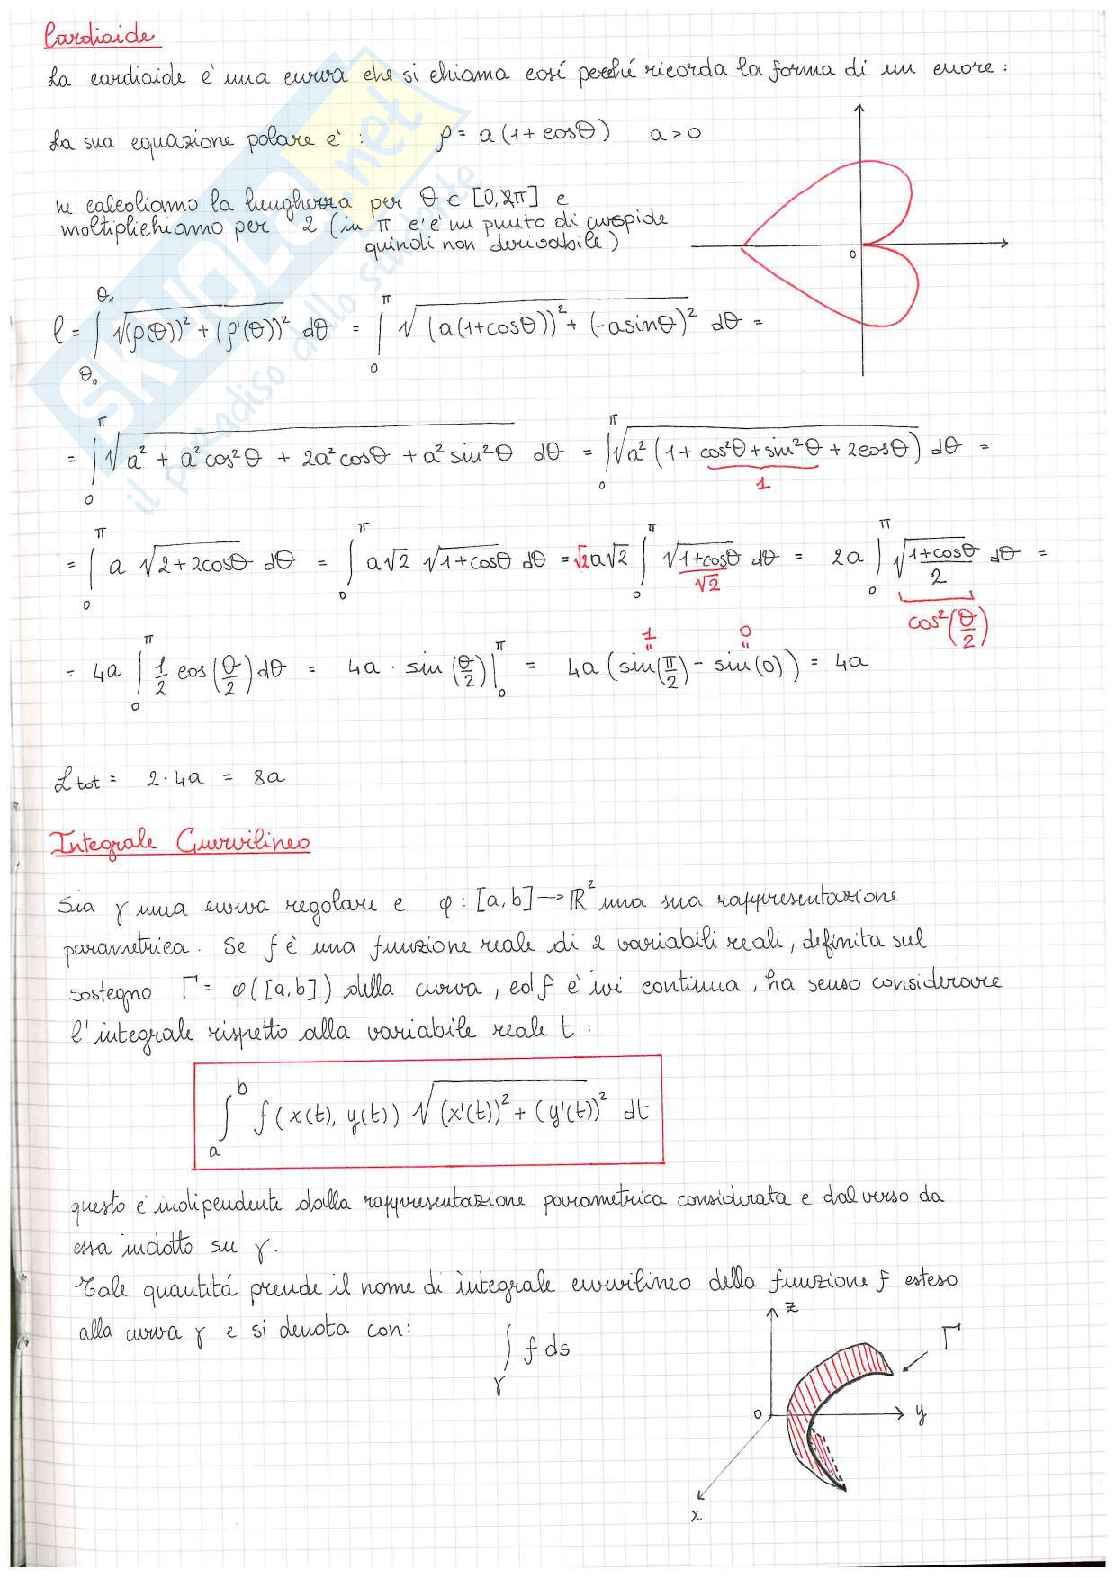 Cardioide
La cardioide è una curva che si chiama così perché ricorda la forma di un cuore:
La sua equazione polare è: ρ = a(1+cosθ) a>0
ne calcoliamo la lunghezza per θ ∈ [0,2π] e
moltiplichiamo per 2 (in π c'è un punto di cuspide
quindi non derivabile)
0
ℓ = ∫_{θ₀}^{θ₁} √((ρ(θ))² + (ρ'(θ))²) dθ = ∫_0^π √((a(1+cosθ))² + (-a sinθ)²) dθ =
= ∫_0^π √(a² + a²cos²θ + 2a²cosθ + a²sin²θ) dθ = ∫_0^π √(a²(1+cos²θ+sin²θ+2cosθ)) dθ =
1
= ∫_0^π a √(2+2cosθ) dθ = ∫_0^π a√2 √(1+cosθ) dθ = √2 a√2 ∫_0^π √(1+cosθ)/√2 dθ = 2a ∫_0^π √((1+cosθ)/2) dθ =
cos²(θ/2)
= 4a ∫_0^π 1/2 cos(θ/2) dθ = 4a · sin(θ/2)|_0^π = 4a (sin(π/2) - sin(0)) = 4a
1 0
L tot = 2·4a = 8a
Integrale Curvilineo
Sia γ una curva regolare e φ: [a,b] → ℝ² una sua rappresentazione
parametrica. Se f è una funzione reale di 2 variabili reali, definita sul
sostegno Γ = φ([a,b]) della curva, ed f è ivi continua, ha senso considerare
l'integrale rispetto alla variabile reale t.
∫_a^b f(x(t), y(t)) √((x'(t))² + (y'(t))²) dt
questo è indipendente dalla rappresentazione parametrica considerata e dal verso da
essa indotto su γ.
Tale quantitá prende il nome di integrale curvilineo della funzione f esteso
alla curva γ e si denota con: ∫_γ f ds
z
Γ
0
y
x
SKUOLA.net
il paradiso dello studente